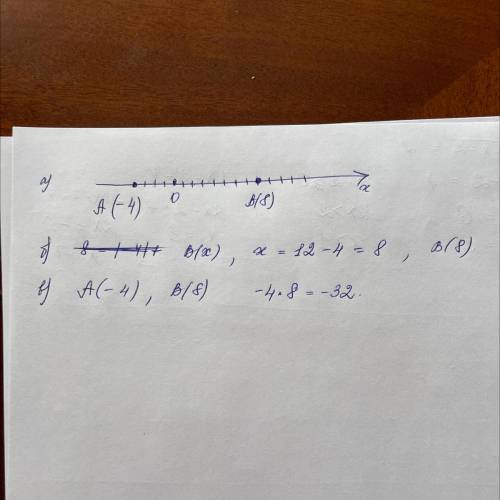 а)
A(-4) 0 B(8) x
б) B(x), x = 12 - 4 = 8, B(8)
в) A(-4), B(8) -4·8 = -32.